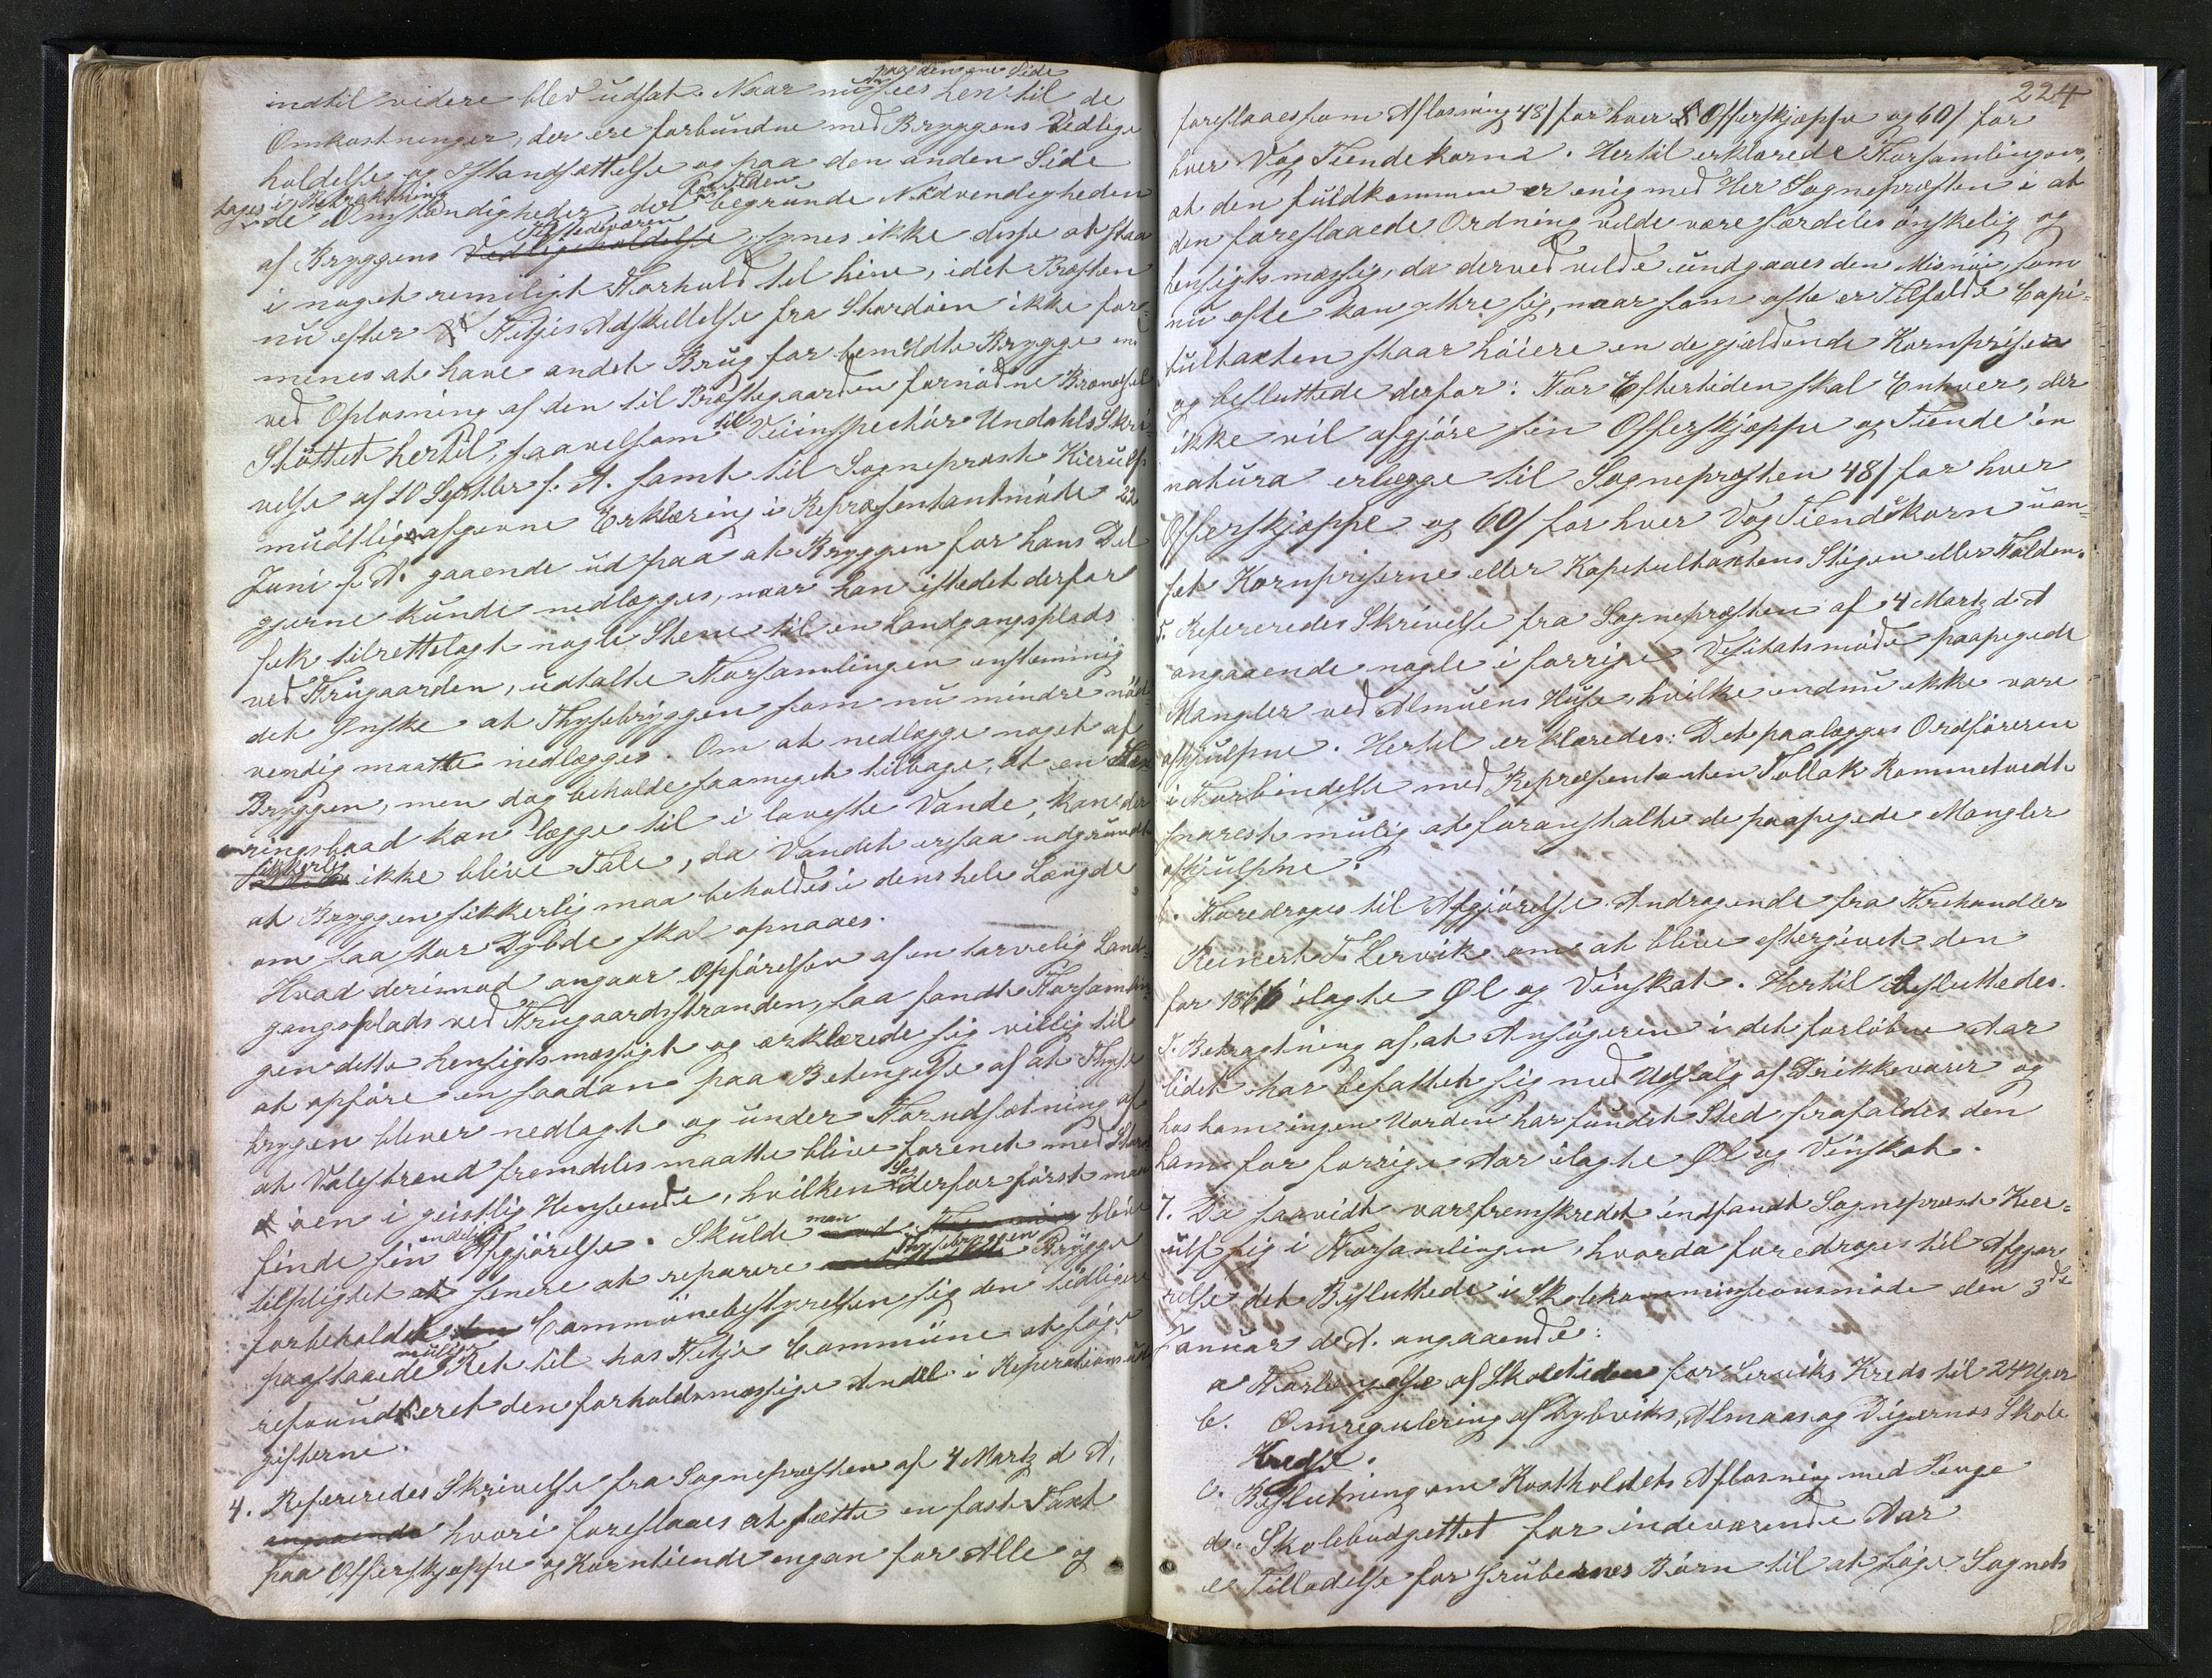 paa den ene Side
indtil videre blev udsat. Naar nu sees hen til de
Omkostninger, der ere forbundne med Bryggens Vedlige
holdelse og Istandsættelse og paa den anden Side
tages i Betragtning
de Omstændigheder, der for Tiden begrunde Nødvendigheden
af Bryggens Vedligeholdelse Tilstedeværen, synes ikke disse at staa
i noget rimeligt Forhold til hine, idet Præsten
nu efter Fitjes Adskillelse fra Stordöen ikke for=
menes at have andet Brug for bemeldte Brygge end
ved Oplosning af den til Præstegaarden fornødne Brændsel
Støttet hertil, saavelsom til Veiinspectör Undahls Skri=
velse af 10 Septbr f. A. samt til Sogneprest Kierulfs
mundtlig afgivne Erklæring i Repræsentantmöde 22
Juni f A. gaaende ud paa at Bryggen for hans Del
gjerne kunde nedlægges, naar han istedet derfor
fik tilrettelagt nogle Stene til en Landgangsplads
ved Frugaarden, udtalte Forsamlingen enstemmig
det Ønske at Thysebryggen som nu mindre nöd=
vendig maatte nedlægges. Om at nedlægge noget af
Bryggen, men dog beholde saameget tilbage, at en
ringsbaad kan lægge til i laveste Vande, kan der
sikkerlig ikke blive Tale, da Vandet er saa udgrundt
at Bryggen sikkerlig maa beholdes i dens hele Længde
om saa stor Dybde skal opnaaes.
Hvad derimod angaar Opförelsen af en tarvelig Land=
gangsplads ved Frugaardsstranden, saa fandt Forsamlin=
gen dette hensigtsmæssigt og erklærede sig villig til
at opføre en saadan paa Betingelse af at Thyse
bryggen bliver nedlagt og under Forudsætning af
at Valestrand fremdeles maatte blive forenet med Stord
öen i geistlig Henseende, hvilken Sag derfor först maa
finde sin endelig Afgjörelse. Skulde man blive
tilpligtet senere at reparere Thysebryggen Brygge
forbeholder Communebestyrelsen sig den tidligere
paastaaede mulige Ret til hos Fitje Commune at søge
refounderet den forholdsmæssige Andel i Reperationsud
gifterne.
4. Refereredes Skrivelse fra Sognepræsten af 4 Martz d A,
angaaende hvori foreslaaes at sætte en fast Taxt
paa Offerskjæppe og Korntiende engan for Alle og
224
foreslaaes som Aflosning 48/ for hver Offerskjæppe og 60/ for
hver Vog Tiendekorn. Hertil erklærede Forsamlingen,
at den fuldkommen er enig med Her Sognepræsten i at
den foreslaaede Ordning vilde være særdeles ønskelig og
hensigtsmæssig, da derved vilde undgaaes den Misnöie, som
nu ofte kan yttre sig, naar som ofte er Tilfælde Capi=
tultaxten staar höiere en de gjældende Kornpriser
og besluttede derfor: For Eftertiden skal Enhver, der
ikke vil afgjöre sin Offerskjæppe og Tiende in
natura erlægge til Sognepræsten 48/ for hver
Offerskjæppe og 60/ for hver Vog Tiendekorn uan=
set Kornpriserne eller Kapitultaxtens Stigen eller Falden.
5. Refereredes Skrivelse fra Sognepræsten af 4 Martz d. A
angaaende nogle i forrige Visitatsmöde paapegede
Mangler ved Almuens Huse, hvilke endnu ikke vare
afhjulpne. Hertil erklæredes: Det paalægges Ordföreren
i Forbindelse med Repræsentanten Tollak Rommetvedt
snarest mulig at foranstalte de paapegede Mangler
afhjulpne.
6. Foredroges til Afgjörelse Andragende fra Frihandler
Reinert T. Lervik om at blive eftergivet den
for 1866 ilagte Øl og Vinskat. Hertil besluttedes.
I Betragtning af at Ansögeren i det forløbne Aar
lidet har befattet sig med Udsalg af Drikkevarer og
hos ham ingen Uorden har fundet Sted frafaldes den
ham for forrige Aar ilagte Øl og Vinskat.
7. Da saavidt var fremskredet indfandt Sogneprest Kier=
ulf sig i Forsamlingen, hvorda foredroges til Afgjø
relse det Besluttede i Skolekommissionsmöde den 3de
Januar d. A. angaaende:
a Forlængelse af Skoletiden for Lerviks Kreds til 24 Uger
b. Omregulering af Dybviks, Almaas og Digernes Skole
Kredse.
c. Beslutning om Kostholdets Aflosning med Penge
d. Skolebudgettet for indeværende Aar
e Tilladelse for Grubernes Börn til at søge Sognets